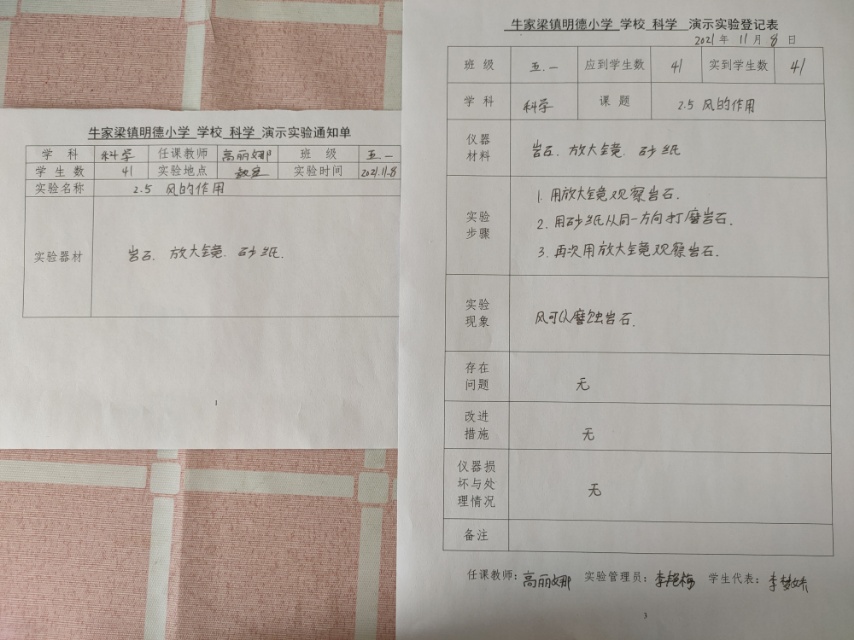 牛家梁镇明德小学 学校 科学 演示实验通知单
学 科 科学 任课教师 高丽娜 班 级 五.一
学 生 数 41 实验地点 教室 实验时间 2021.11.8
实验名称 2.5 风的作用
实验器材 岩石、放大镜、砂纸.
1
牛家梁镇明德小学 学校 科学 演示实验登记表
2021 年 11 月 8 日
班 级 五.一 应到学生数 41 实到学生数 41
学 科 科学 课 题 2.5 风的作用
仪器
材料
岩石、放大镜、砂纸
实验
步骤
1. 用放大镜观察岩石.
2. 用砂纸从同一方向打磨岩石.
3. 再次用放大镜观察岩石.
实验
现象
风可以磨蚀岩石.
存在
问题
无
改进
措施
无
仪器损
坏与处
理情况
无
备注
任课教师：高丽娜 实验管理员：李艳梅 学生代表：李梦娇
3